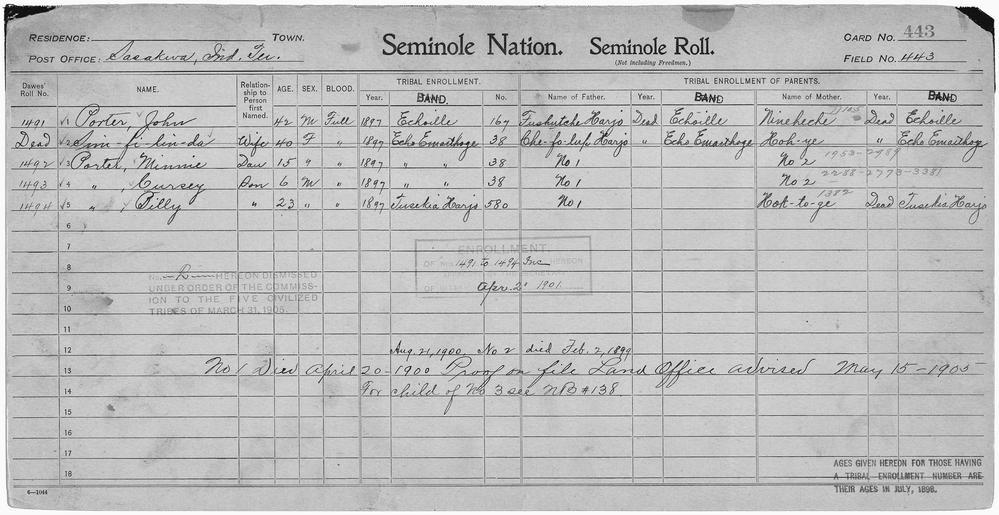 443
RESIDENCE: TOWN. Seminole Nation. Seminole Roll. CARD NO.
POST OFFICE: Sasakwa, Ind. Ter. (Not including Freedmen.) FIELD NO. 443
Dawes' Roll No. NAME. Relationship to Person first Named. AGE. SEX. BLOOD. TRIBAL ENROLLMENT. TRIBAL ENROLLMENT OF PARENTS.
Year. BAND. No. Name of Father. Year. BAND Name of Mother. Year. BAND
1491 1 Porter John 42 M Full 1897 Echoille 167 Fushutche Harjo Dead Echoille Nineheche Dead Echoille
Dead 2 Sim-fi-lin-da Wife 40 F " 1897 Echo Emarthoge 38 Che-fo-lup Harjo " Echo Emarthoge Hoh-ye " Echo Emarthoge
1492 3 Porter, Minnie Dau 15 " " 1897 " " 38 No 1 No 2 1953-2989
1493 4 " Cursey Son 6 M " 1897 " " 38 No 1 No 2 2288-2773-3381
1494 5 " Billy " 23 " " 1897 Tusekia Harjo 580 No 1 Hok-to-ge 1382 Dead Tusekia Harjo
6
7
8
9
10
11
12
13
14
15
16
17
18
ENROLLMENT.
OF 1491 to 1494 Inc HEREON
Apr. 2 1901
No. 2 HEREON DISMISSED
UNDER ORDER OF THE COMMISSION TO THE FIVE CIVILIZED
TRIBES OF MARCH 31, 1905.
Aug. 21, 1900. No 2 died Feb. 2, 1899
No 1 Died April 20-1900 Proof on file Land Office advised May 15-1905
For child of No 3 see NB #138.
AGES GIVEN HEREON FOR THOSE HAVING
A TRIBAL ENROLLMENT NUMBER ARE
THEIR AGES IN JULY, 1898.
6—1044